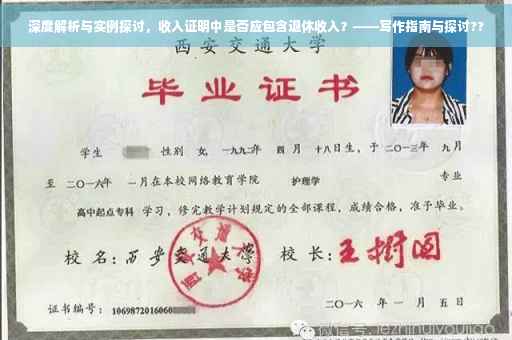 深度解析与实例探讨，收入证明中是否应包含退休收入？——写作指南与探讨??
西安交通大学
毕业证书
学生 性别 女，一九九二年 四月 十八日生，于二〇一三年 九月
至 二〇一六年 一月在本校网络教育学院 护理学 专业
高中起点专科 学习，修完教学计划规定的全部课程，成绩合格，准予毕业。
校名：西安交通大学 校长：王树国
西安交通大学
证书编号：1069872016060
二〇一六年 一月五日
微信号: jezhihuiyoujiao